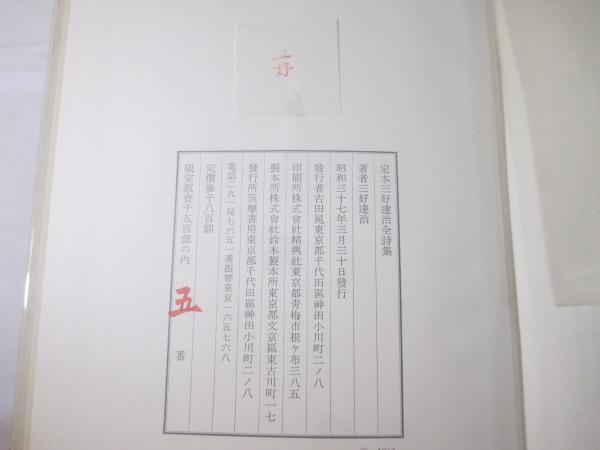 三好
定本三好達治全詩集
著者三好達治
昭和三十七年三月三十日發行
發行者古田晁東京都千代田區神田小川町二ノ八
印刷所株式會社精興社東京都青梅市根ヶ布三八五
製本所株式會社鈴木製本所東京都文京區東古川町一七
發行所筑摩書房東京都千代田區神田小川町二ノ八
電話二九一局七六五一番振替東京一六五七六八
定價參千八百圓
限定版壹千五百部の內 五 番